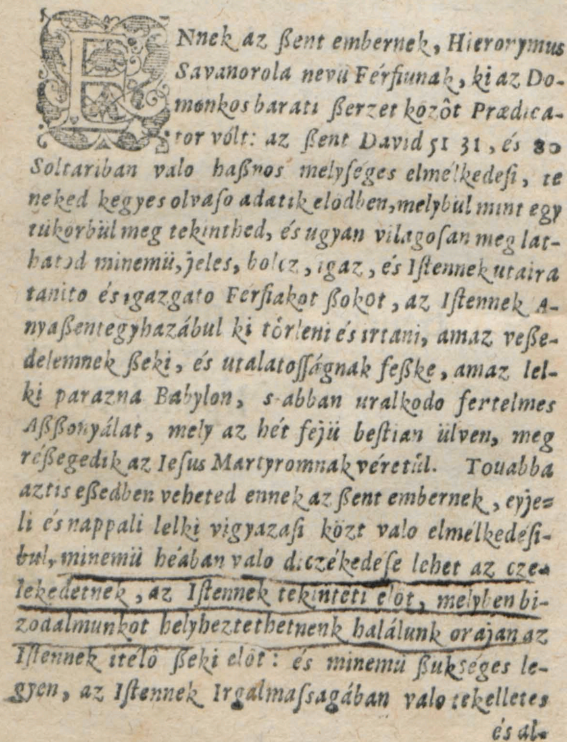 ENnek az ßent embernek, Hieronymus
Savanorola nevü Férfiunak, ki az Do-
monkos barati ßerzet közöt Prædica-
tor vólt: az ßent David 51 31, és 80
Soltariban valo haßnos melységes elmélkedesi, te
neked kegyes olvaso adatik elódben, melybül mint egy
tükörbül meg tekinthed, és ugyan vilagosan meg lat-
hatod minemü, jeles, bolcz, igaz, és Istennek utaira
tanito és igazgato Ferfiakot ßokot, az Istennek A-
nyaßentegyhazábul ki törleni és irtani, amaz veße-
delemnek ßeki, és utalatosságnak feßke, amaz lel-
ki parazna Babylon, s-abban uralkodo fertelmes
Aßßonyálat, mely az hét fejü bestian ülven, meg
reßegedik az Iesus Martyromnak véretül. Touabba
aztis eßedben veheted ennek az ßent embernek, eyje-
li és nappali lelki vigyazasi közt valo elmélkedési-
bul, minemü héaban valo diczékedese lehet az cze-
lekedetnek, az Istennek tekinteti elöt, melyben bi-
zodalmunkot helyheztethetnenk halálunk orajan az
Istennek itélö ßeki elöt: és minemü ßukséges le-
gyen, az Istennek Irgalmassagában valo tekelletes
és al-